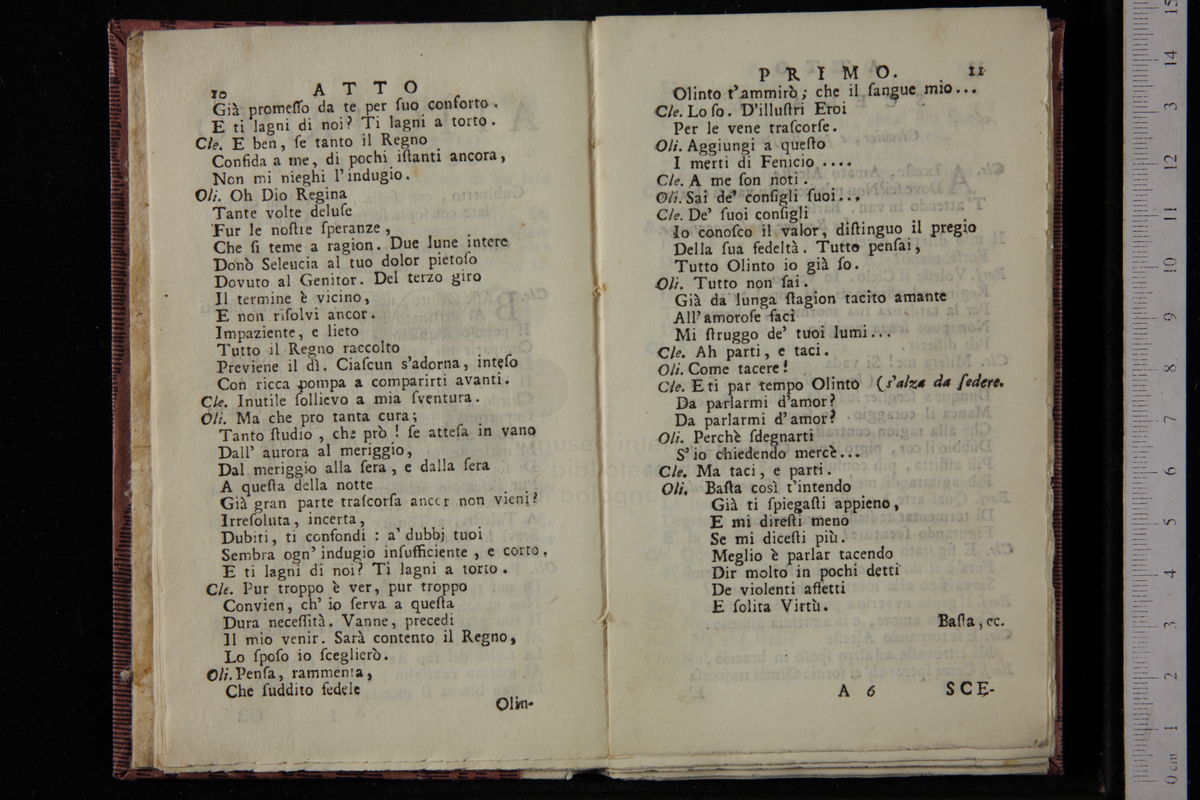 10 ATTO
Già promeſſo da te per ſuo conforto.
E ti lagni di noi? Ti lagni a torto.
Cle. E ben, ſe tanto il Regno
Confida a me, di pochi iſtanti ancora,
Non mi nieghi l'indugio.
Oli. Oh Dio Regina
Tante volte deluſe
Fur le noſtre ſperanze,
Che ſi teme a ragion. Due lune intere
Donò Seleucia al tuo dolor pietoſo
Dovuto al Genitor. Del terzo giro
Il termine è vicino,
E non riſolvi ancor.
Impaziente, e lieto
Tutto il Regno raccolto
Previene il dì. Ciaſcun s'adorna, inteſo
Con ricca pompa a comparirti avanti.
Cle. Inutile ſollievo a mia ſventura.
Oli. Ma che pro tanta cura;
Tanto ſtudio, che prò! ſe atteſa in vano
Dall' aurora al meriggio,
Dal meriggio alla ſera, e dalla ſera
A queſta della notte
Già gran parte traſcorſa ancor non vieni?
Irreſoluta, incerta,
Dubiti, ti confondi : a' dubbj tuoi
Sembra ogn' indugio inſufficiente, e corto,
E ti lagni di noi? Ti lagni a torto.
Cle. Pur troppo è ver, pur troppo
Convien, ch' io ſerva a queſta
Dura neceſſità. Vanne, precedi
Il mio venir. Sarà contento il Regno,
Lo ſpoſo io ſceglierò.
Oli. Penſa, rammenta,
Che ſuddito fedele
Olin-
PRIMO. 11
Olinto t'ammirò; che il ſangue mio...
Cle. Lo ſo. D'illuſtri Eroi
Per le vene traſcorſe.
Oli. Aggiungi a queſto
I merti di Fenicio ....
Cle. A me ſon noti.
Oli. Sai de' conſigli ſuoi...
Cle. De' ſuoi conſigli
Io conoſco il valor, diſtinguo il pregio
Della ſua fedeltà. Tutto penſai,
Tutto Olinto io già ſo.
Oli. Tutto non ſai.
Già da lunga ſtagion tacito amante
All' amoroſe faci
Mi ſtruggo de' tuoi lumi...
Cle. Ah parti, e taci.
Oli. Come tacere!
Cle. E ti par tempo Olinto (s'alza da ſedere.
Da parlarmi d'amor?
Da parlarmi d'amor?
Oli. Perchè ſdegnarti
S' io chiedendo mercè...
Cle. Ma taci, e parti.
Oli. Baſta così t'intendo
Già ti ſpiegaſti appieno,
E mi direſti meno
Se mi diceſti più.
Meglio è parlar tacendo
Dir molto in pochi detti
De violenti affetti
E ſolita Virtù.
Baſta, ec.
A 6 SCE-